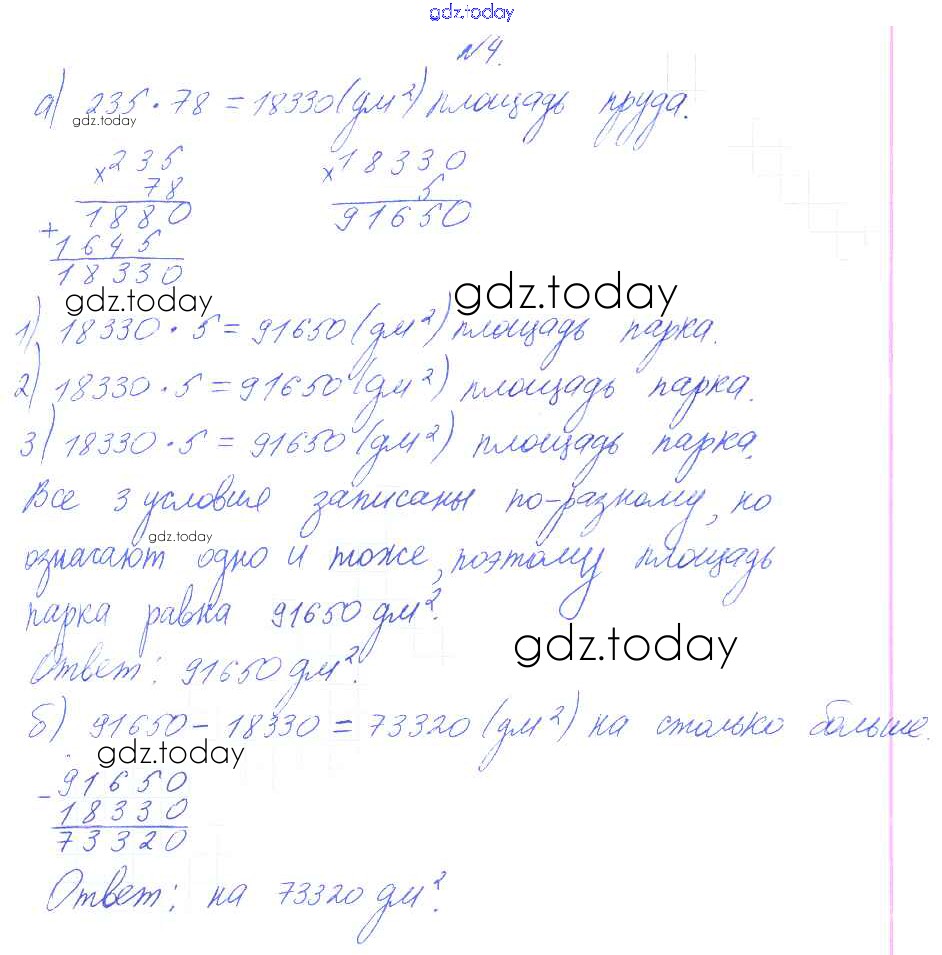 gdz.today
№4.
а) 235 · 78 = 18330 (дм²) площадь пруда.
gdz.today
× 235
78
1880
+ 1645
18330
× 18330
5
91650
gdz.today
gdz.today
1) 18330 · 5 = 91650 (дм²) площадь парка.
2) 18330 · 5 = 91650 (дм²) площадь парка.
3) 18330 · 5 = 91650 (дм²) площадь парка.
Все 3 условия записаны по-разному, но
gdz.today
означают одно и тоже, поэтому площадь
парка равна 91650 дм².
gdz.today
Ответ: 91650 дм².
б) 91650 - 18330 = 73320 (дм²) на столько больше.
gdz.today
- 91650
18330
73320
Ответ: на 73320 дм².